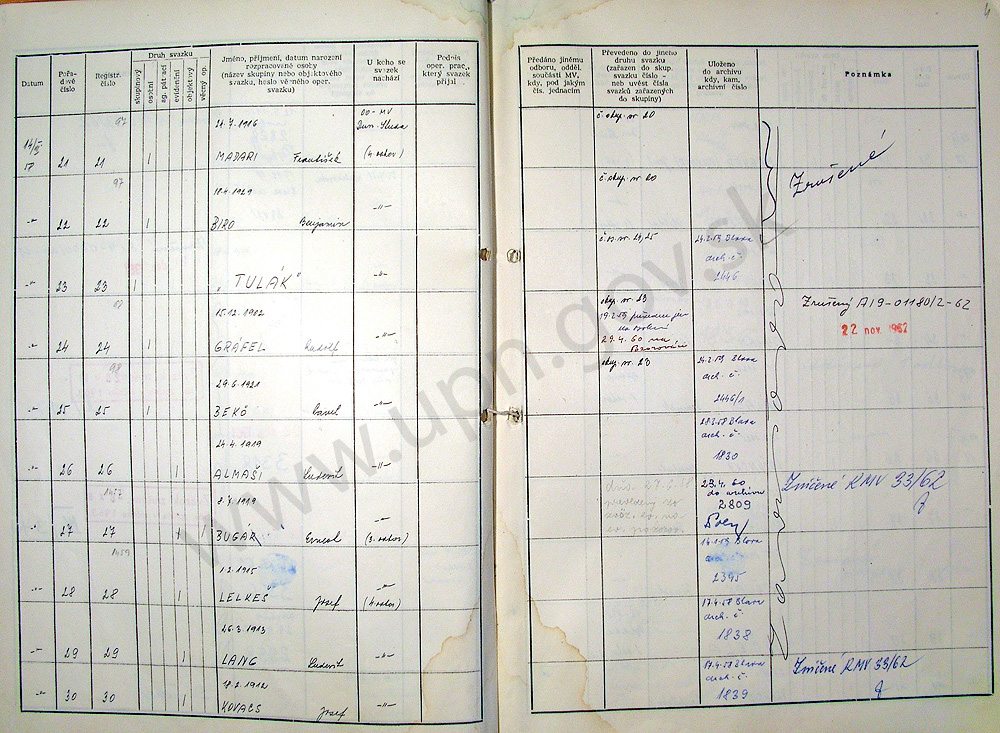 4
Datum
Pořadové číslo
Registr. číslo
Druh svazku
skupinový
osobní
ag. pátrací
evidenční
objektový
věcný op.
Jméno, příjmení, datum narození
rozpracované osoby
(název skupiny nebo objektového
svazku, heslo věrného oper.
svazku)
U koho se
svazek
nachází
Podpis
oper. prac.,
který svazek
přijal
Předáno jinému
odboru, odděl.
součásti MV,
kdy, pod jakým
čís. jednacím
Převedeno do jiného
druhu svazku
(zařazen do skup.
svazku číslo -
neb uvést čísla
svazků zařazených
do skupiny)
Uloženo
do archivu
kdy, kam,
archivní číslo
Poznámka
21.7.1916
OO-MV
21 21 1 MADARI František
č. skup. nr. 20
Zrušené
97
18.4.1929
-"- 22 22 1 BIRO Benjamin -"-
č. skup. nr. 20
-"- 23 23 1 "TULÁK" -"-
č. os. nr. 24, 25
24.2.59 Blava
arch. č.
2446
15.12.1902
-"- 24 24 1 GRÁFEL Rudolf -"-
skup. nr. 23
29.4.60 na
Zrušený A19-01180/2-62
22 nov. 1962
98
29.6.1921
-"- 25 25 1 BEKÖ -"-
skup. nr. 23
24.2.59 Blava
arch. č.
2446/1
24.4.1919
-"- 26 26 1 ALMAŠI Ludevit -"-
28.3.58 Blava
arch. č.
1830
2.7.1919
-"- 27 27 1 1 BUGÁR Ernest -"-
29.4.60
do archivu
2809
Zničené RMV 33/62
1.2.1915
-"- 28 28 1 LELKEŠ Jozef -"-
Blava
2395
26.3.1913
-"- 29 29 1 LANG Ludevit -"-
17.4.58 Blava
arch. č.
1838
18.2.1912
-"- 30 30 1 KOVACS Jozef -"-
17.4.58 Blava
arch. č.
1839
Zničené RMV 33/62
www.upn.gov.sk